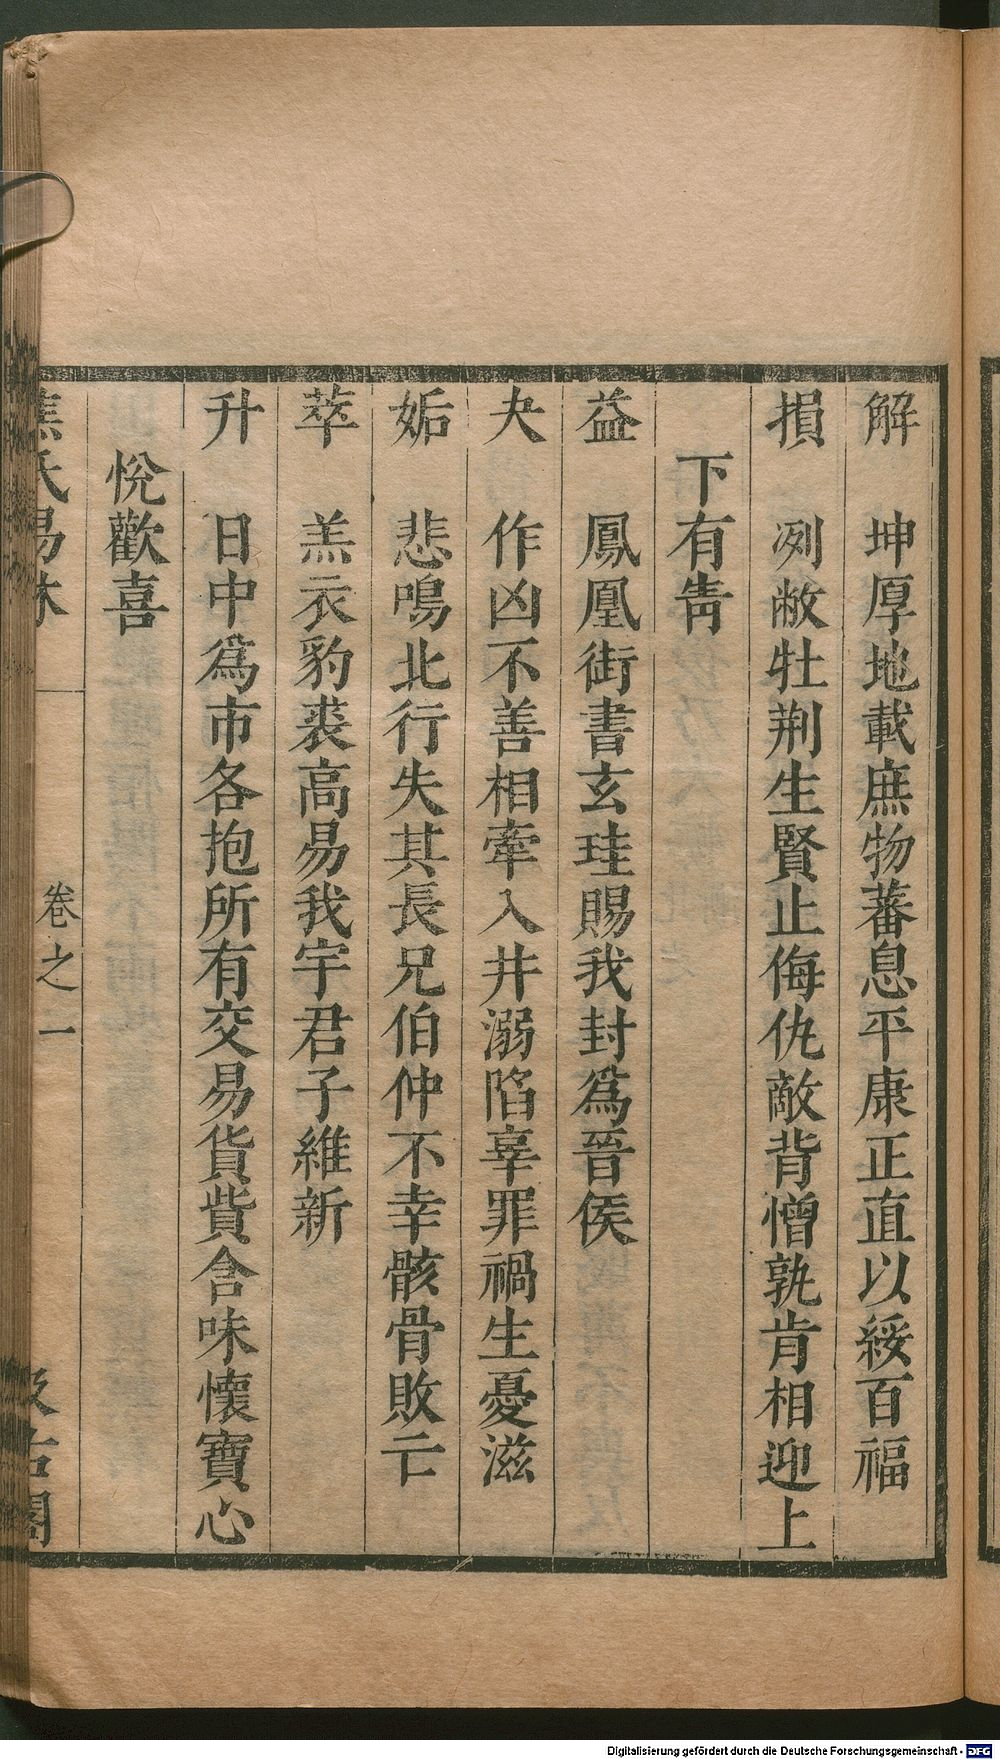 解　坤厚地載庶物蕃息平康正直以綏百福
損　冽敝牡荆生賢止侮仇敵背憎孰肯相迎上
下有靑
益　鳳凰銜書玄珪賜我封爲晉侯
夬　作凶不善相牽入井溺陷辜罪禍生憂滋
姤　悲鳴北行失其長兄伯仲不幸骸骨敗亡
萃　羔衣豹裘高易我宇君子維新
升　日中爲市各抱所有交易貨貲含味懷寶心
悅歡喜
焦氏易林　卷之一　汲古閣
Digitalisierung gefördert durch die Deutsche Forschungsgemeinschaft - DFG